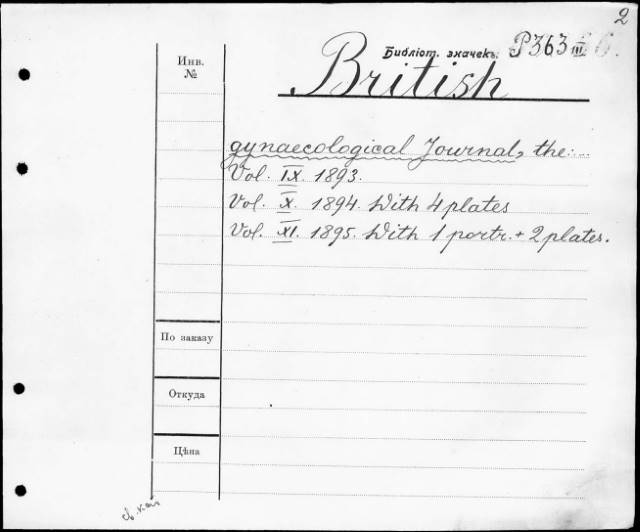 2
Инв.
№
Библіот. значекъ:
P363
III
British
gynaecological Journal, the:...
Vol. IX. 1893.
Vol. X. 1894. With 4 plates
Vol. XI. 1895. With 1 portr. + 2 plates.
По заказу
Откуда
Цѣна